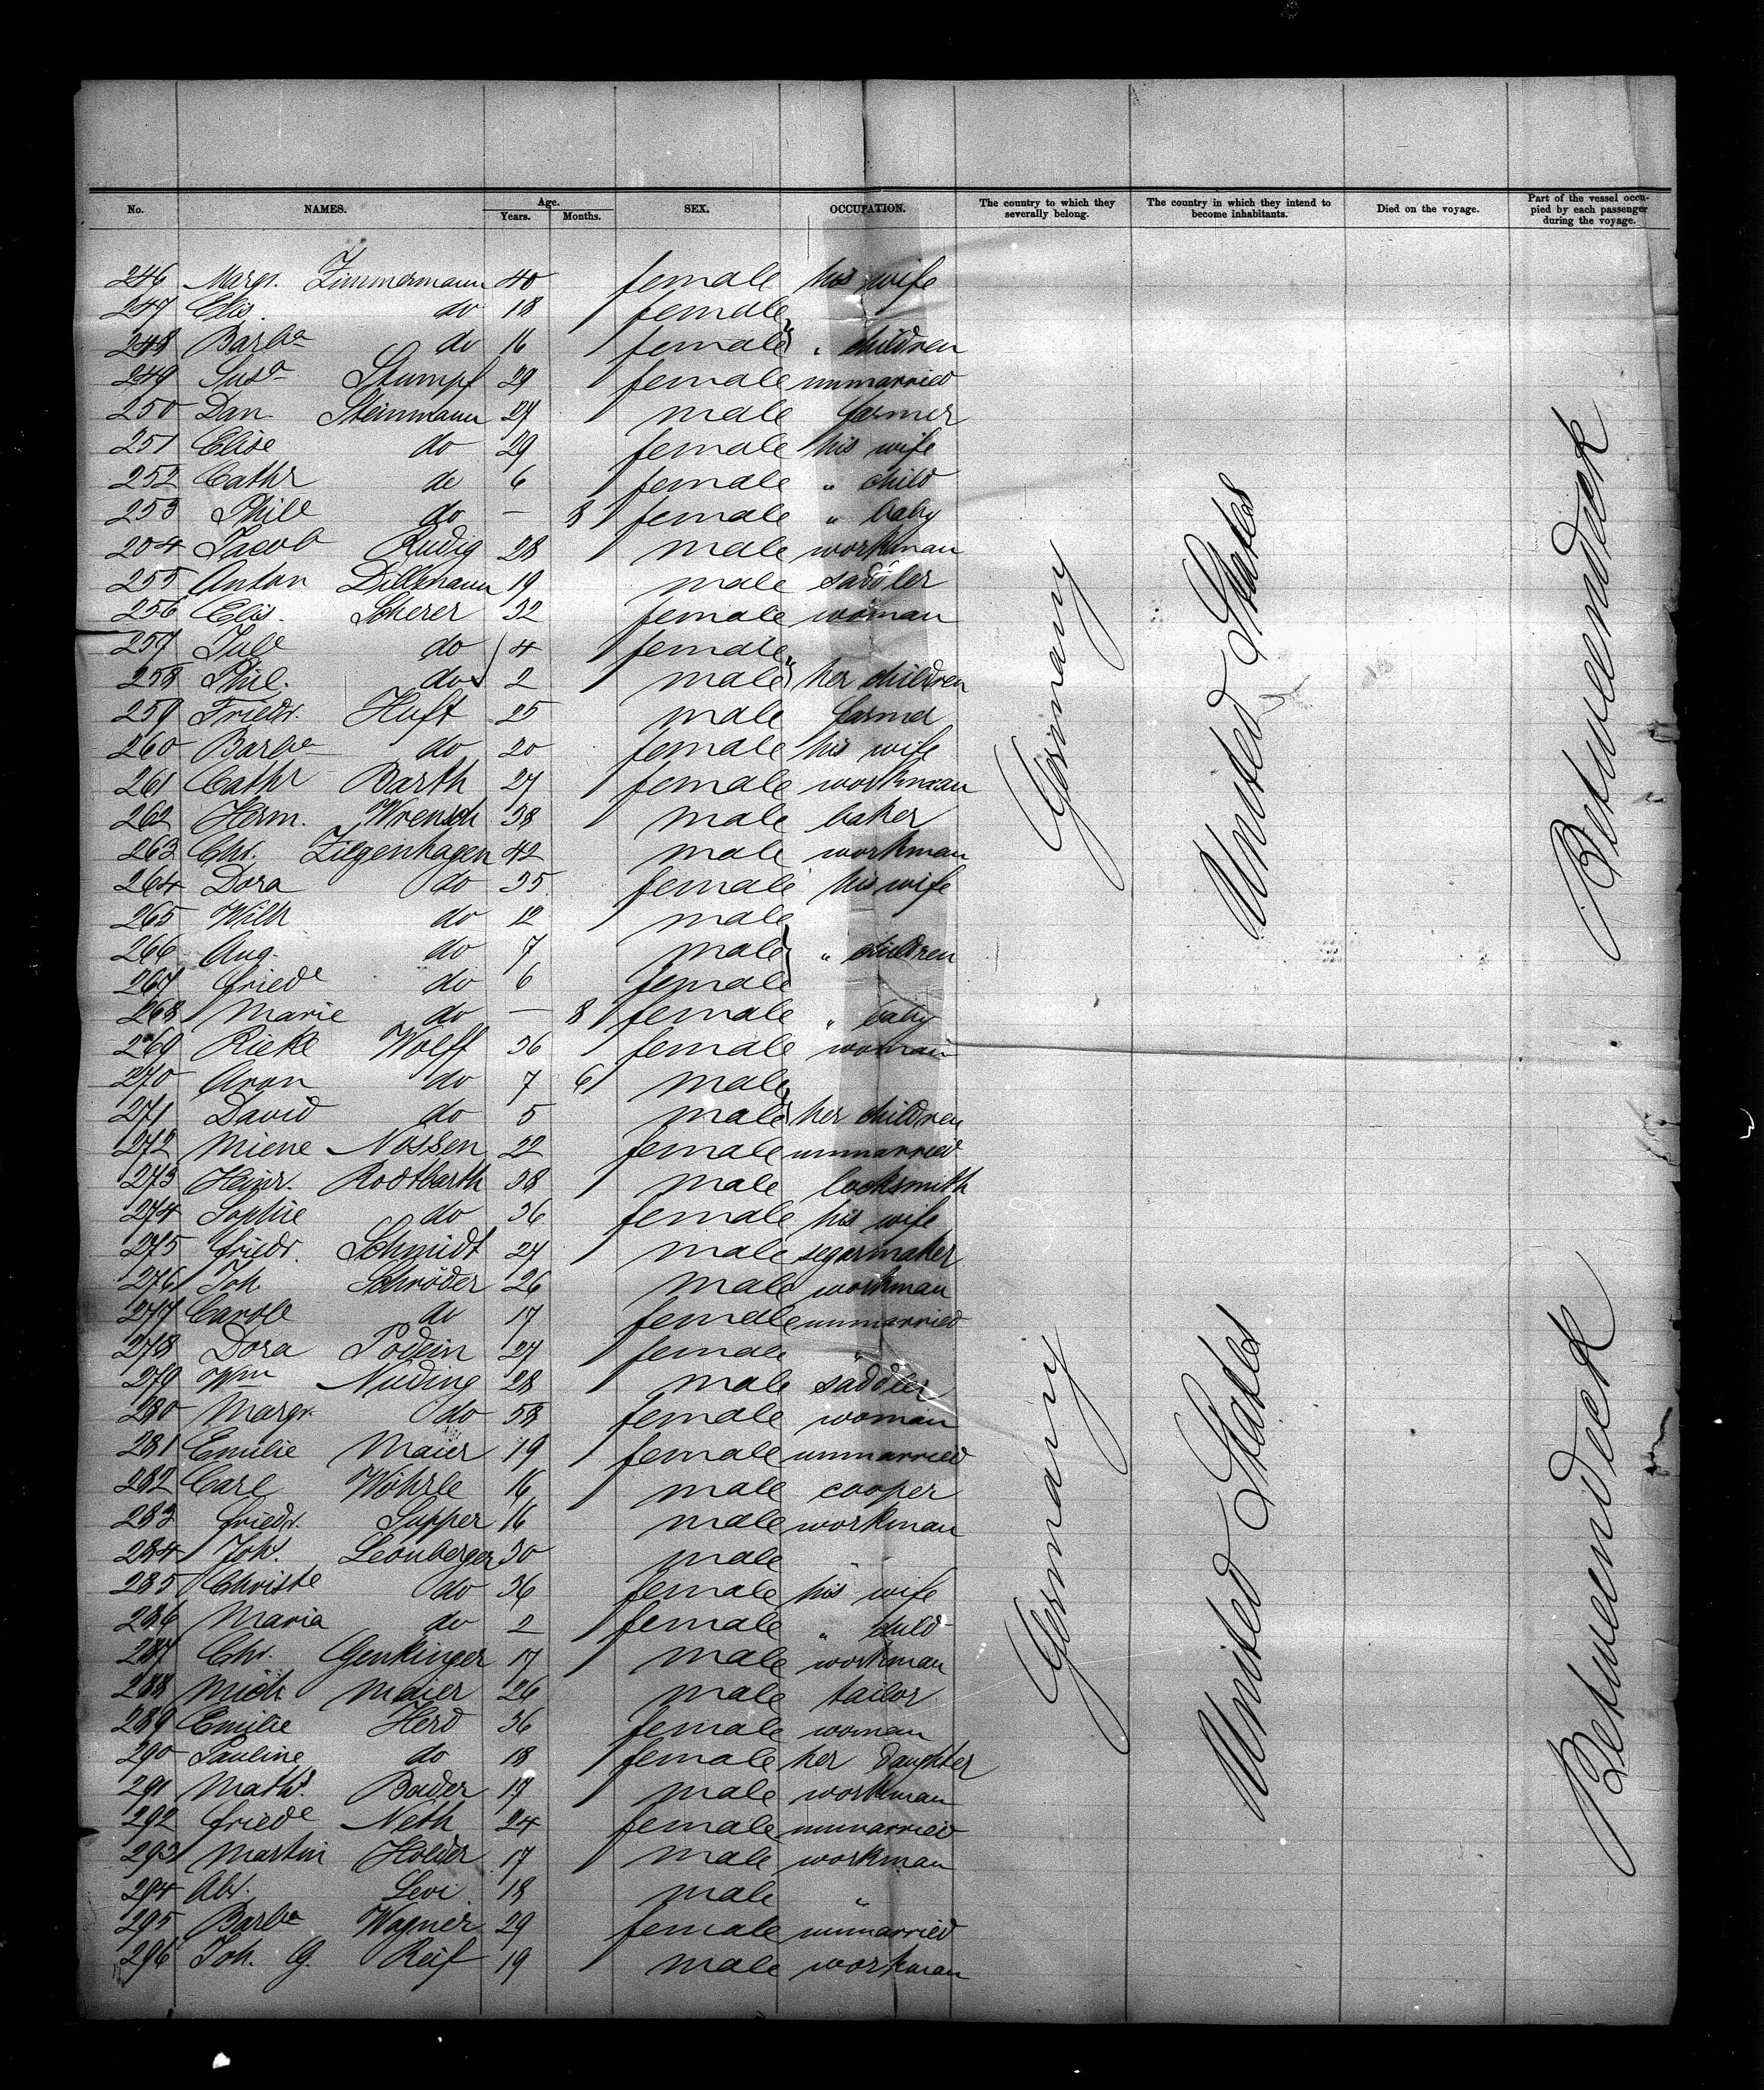 No. NAMES. Age. Years. Months. SEX. OCCUPATION. The country to which they severally belong. The country in which they intend to become inhabitants. Died on the voyage. Part of the vessel occupied by each passenger during the voyage.
246 Margr. Zimmermann 40 female his wife
247 Elis. do 18 female
248 Barba do 16 female " children
249 Susa Stumpf 29 female unmarried
250 Dan. Steinmann 27 male farmer
251 Elise do 29 female his wife
252 Cathr do 6 female " child
253 Phill do — 8 female " baby
254 Jacob Rudig 28 male workman
255 Anton Dillemann 19 male saddler
256 Elis. Scherer 32 female woman
257 Jule do 4 female
258 Phil. do 2 male her children
259 Friedr. Huft 25 male farmer
260 Barba do 20 female his wife
261 Cathr Barth 27 female workman
262 Herm. Wrensch 38 male baker
263 Chr. Ziegenhagen 42 male workman
264 Dora do 35 female his wife
265 Wilh do 12 male
266 Aug. do 7 male " children
267 Friede do 6 female
268 Marie do — 8 female " baby
269 Rieke Wolff 36 female woman
270 Aron do 7 6 male
271 David do 5 male her children
272 Miene Nossen 22 female unmarried
273 Heinr. Rodtbarth 38 male locksmith
274 Sophie do 36 female his wife
275 Friedr. Schmidt 27 male segarmaker
276 Joh. Schröder 26 male workman
277 Carole do 17 female unmarried
278 Dora Podein 27 female "
279 Wm Nuding 28 male saddler
280 Margr. do 58 female woman
281 Emilie Maier 19 female unmarried
282 Carl Wöhrle 16 male cooper
283 Friedr. Supper 16 male workman
284 Johs. Leonberger 30 male "
285 Christe do 36 female his wife
286 Maria do 2 female " child
287 Chr. Genkinger 17 male workman
288 Mich Maier 26 male tailor
289 Emilie Herd 36 female woman
290 Pauline do 18 female her daughter
291 Maths. Bader 17 male workman
292 Friede Neth 24 female unmarried
293 Martin Holder 17 male workman
294 Abr. Levi 18 male "
295 Barba Wagner 29 female unmarried
296 Joh. G. Reif 19 male workman
Germany
United States
Betweendeck
Germany
United States
Betweendeck